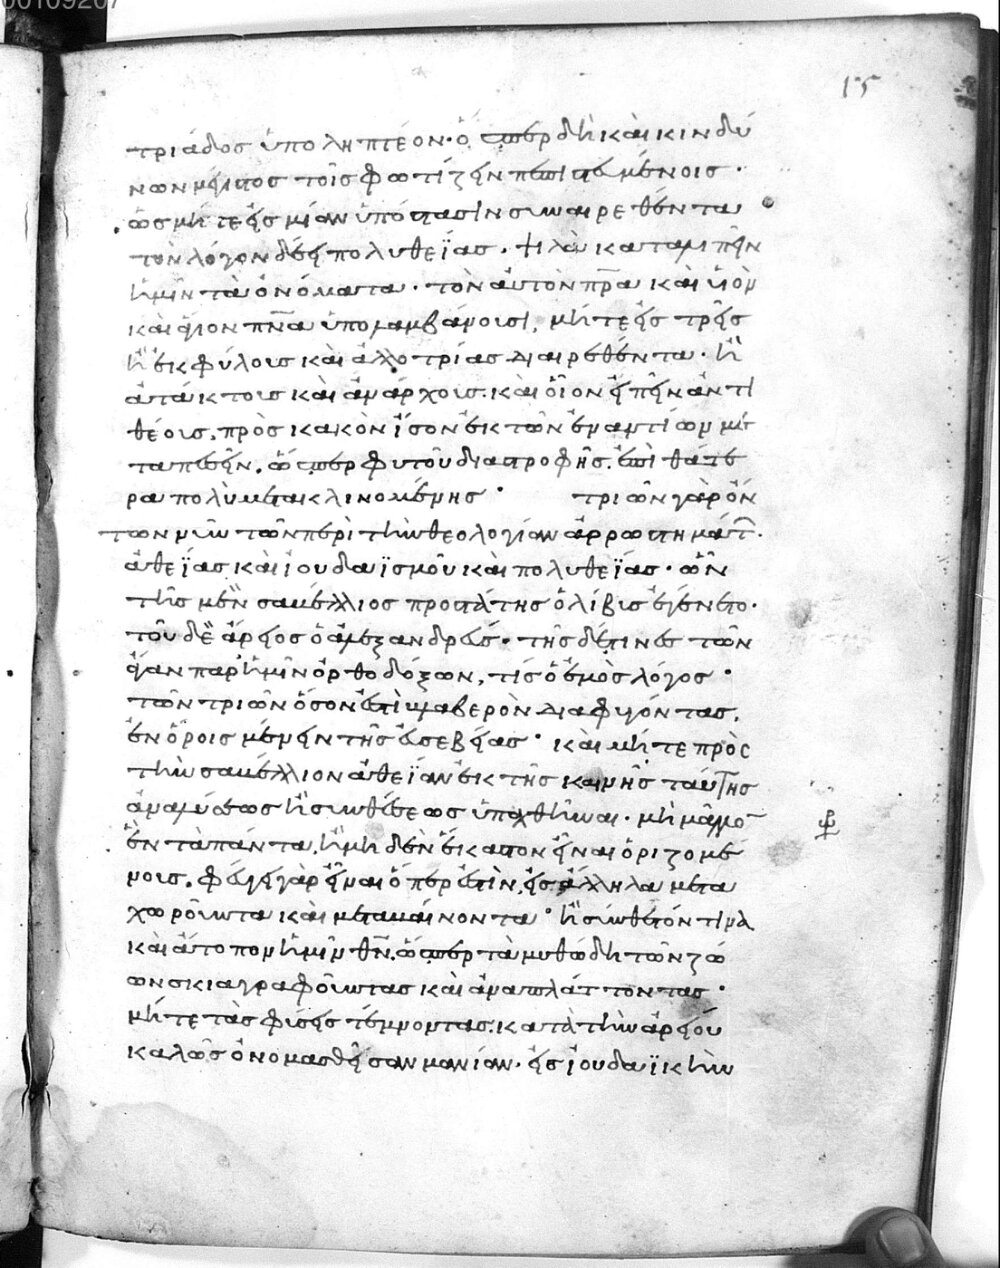 00109207
15
τριάδος ὑποληπτέον· ὅπερ δὴ καὶ κινδύ
νων μέγιστος τοῖς φωτίζειν πεπιστευμένοις·
ὡς μήτε εἰς μίαν ὑπόστασιν συναιρεθέντα
τὸν λόγον δέει πολυθεΐας· ψιλὰ καταλιπεῖν
ἡμῖν τὰ ὀνόματα· τὸν αὐτὸν πρα καὶ υἱὸν
καὶ ἅγιον πνα ὑπολαμβάνουσι, μήτε εἰς τρεῖς
ἢ ἐκφύλους καὶ ἀλλοτρίας διαιρεθέντα· ἢ
ἀτάκτους καὶ ἀνάρχους· καὶ οἷον εἰπεῖν ἀντι
θέους, πρὸς κακὸν ἴσον ἐκ τῶν ἐναντίων με
ταπεσεῖν, ὥσπερ φυτοῦ διαστροφῆς ἐπὶ θάτε
ρα πολὺ μετακλινομένης· τριῶν γὰρ ὄν
των νῦν τῶν περὶ τὴν θεολογίαν ἀρρωστημάτ·
ἀθεΐας καὶ ἰουδαϊσμοῦ καὶ πολυθεΐας· ὧν
τῆς μὲν σαβέλλιος προστάτης ὁ λίβυς ἐγένετο·
τοῦ δὲ ἄρειος ὁ ἀλεξανδρεύς· τῆς δέ τινες τῶν
ἄγαν παρ' ἡμῖν ὀρθοδόξων, τίς ὁ ἐμὸς λόγος·
τῶν τριῶν ὅσον ἐστὶ βλαβερὸν διαφυγόντας,
ἐν ὅροις μένειν τῆς εὐσεβείας· καὶ μήτε πρὸς
τὴν σαβέλλιον ἀθεΐαν ἐκ τῆς καινῆς ταύτης
ἀναλύσεως ἢ συνθέσεως ὑπαχθῆναι· μὴ μᾶλλο
ἓν τὰ πάντα, ἢ μηδὲν ἕκαστον εἶναι ὁριζομέ
νους, φεύγει γὰρ εἶναι ὅπερ ἐστὶν, εἰς ἄλληλα μετα
χωροῦντα καὶ μεταβαίνοντα· ἢ σύνθετόν τινα
καὶ ἄτοπον ἡμῖν θν, ὥσπερ τὰ μυθώδη τῶν ζώ
ων σκιαγραφοῦντας καὶ ἀναπλάττοντας·
μήτε τὰς φύσεις τέμνοντας, κατὰ τὴν ἀρείου
καλῶς ὀνομασθεῖσαν μανίαν· εἰς ἰουδαϊκὴν